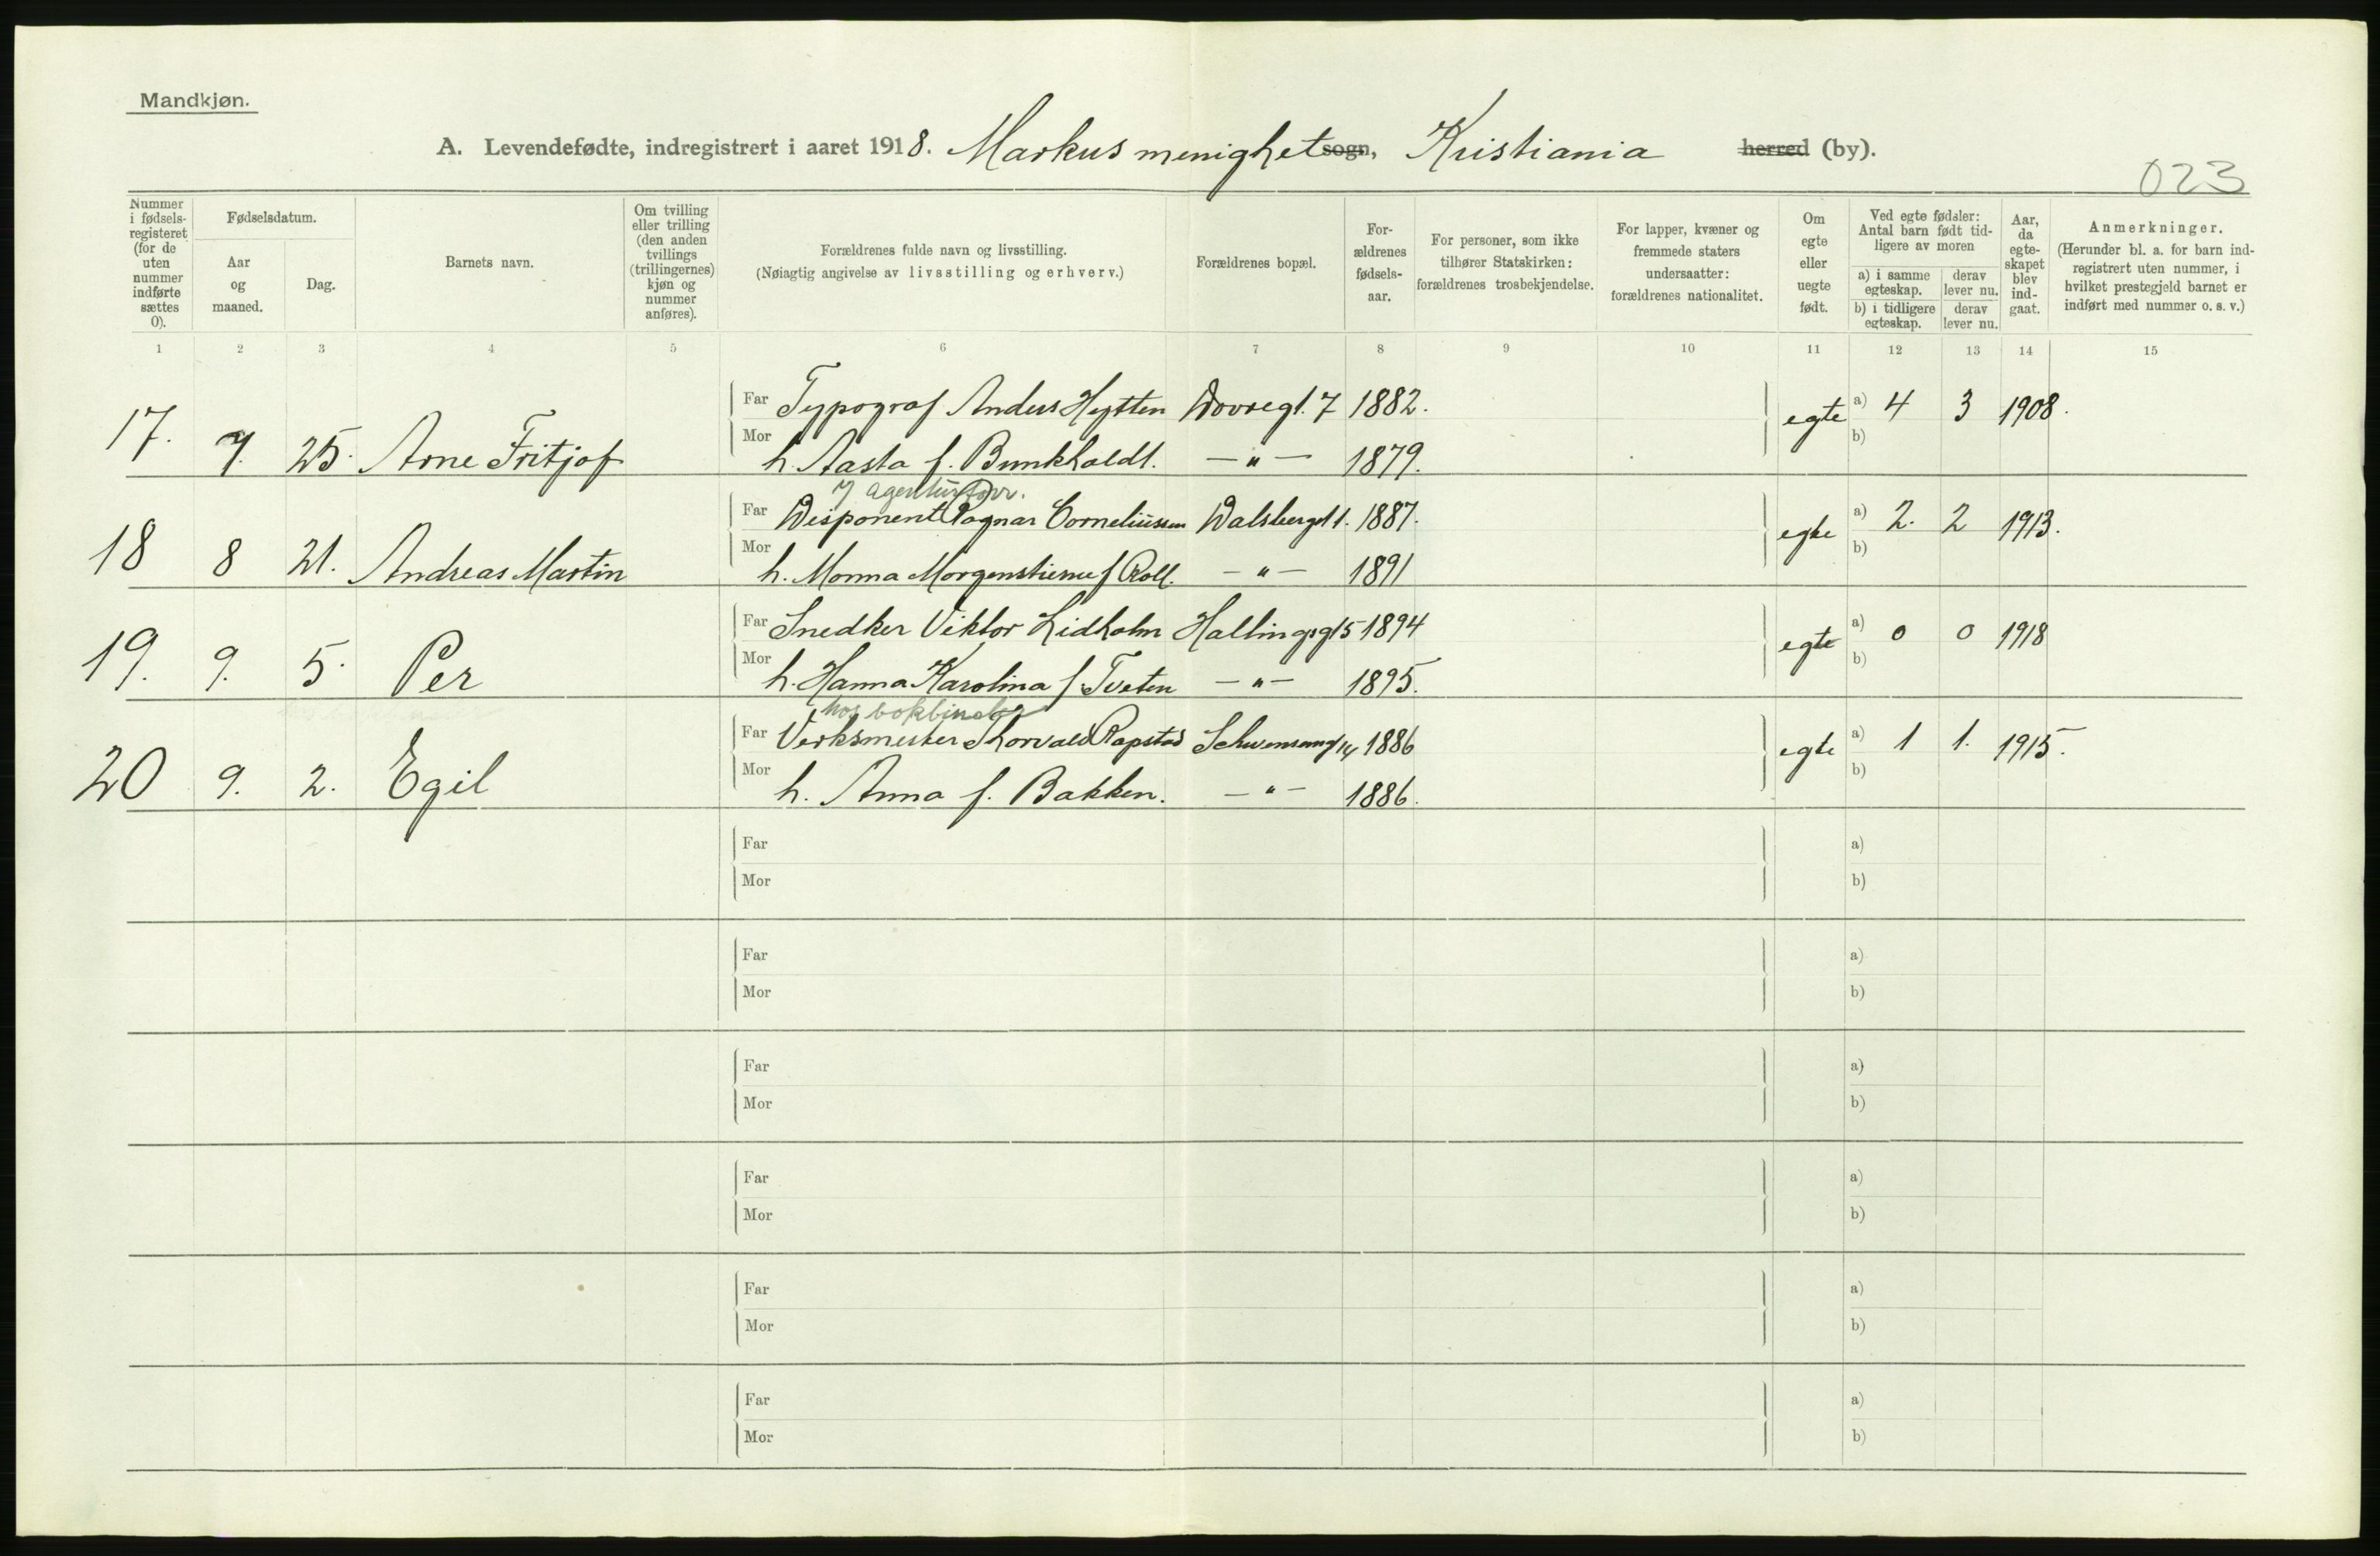 Mandkjøn.
A. Levendefødte, indregistrert i aaret 1918. Markus menighet sogn, Kristiania herred (by).
023
Nummer i fødsels-registeret (for de uten nummer indførte sættes 0).
Fødselsdatum.
Aar og maaned.
Dag.
Barnets navn.
Om tvilling eller trilling (den anden tvillings (trillingernes) kjøn og nummer anføres).
Forældrenes fulde navn og livsstilling.
(Nøiagtig angivelse av livsstilling og erhverv.)
Forældrenes bopæl.
For-ældrenes fødsels-aar.
For personer, som ikke tilhører Statskirken: forældrenes trosbekjendelse.
For lapper, kvæner og fremmede staters undersaatter: forældrenes nationalitet.
Om egte eller uegte født.
Ved egte fødsler: Antal barn født tid-ligere av moren
a) i samme egteskap.
derav lever nu.
b) i tidligere egteskap.
derav lever nu.
Aar, da egte-skapet blev ind-gaat.
Anmerkninger.
(Herunder bl. a. for barn ind-registrert uten nummer, i hvilket prestegjeld barnet er indført med nummer o. s. v.)
1 2 3 4 5 6 7 8 9 10 11 12 13 14 15
Far Typograf Anders Hytten Dovregt. 7 1882. egte a) 4 3 1908.
17. 7. 25. Arne Fritjof
Mor h. Aasta f. Bunkholdt. — " — 1879. b)
i agenturforr.
Far Disponent Ragnar Corneliussen 1. 1887. egte a) 2. 2 1913.
18 8 21. Andreas Martin
Mor h. Monna Morgenstierne f Roll. — " — 1891 b)
Far Snedker Viktor Lidholm Hallingsgt 5 1894 egte a) 0 0 1918
19. 9. 5. Per
Mor h. Hanna Karolina f. Tveten — " — 1895. b)
hos bokbinder
Far Verksmester Thorvald Rapstad 14 1886 egte a) 1 1. 1915.
20 9. 2. Egil
Mor h. Anna f. Bakken. — " — 1886. b)
Far a)
Mor b)
Far a)
Mor b)
Far a)
Mor b)
Far a)
Mor b)
Far a)
Mor b)
Far a)
Mor b)